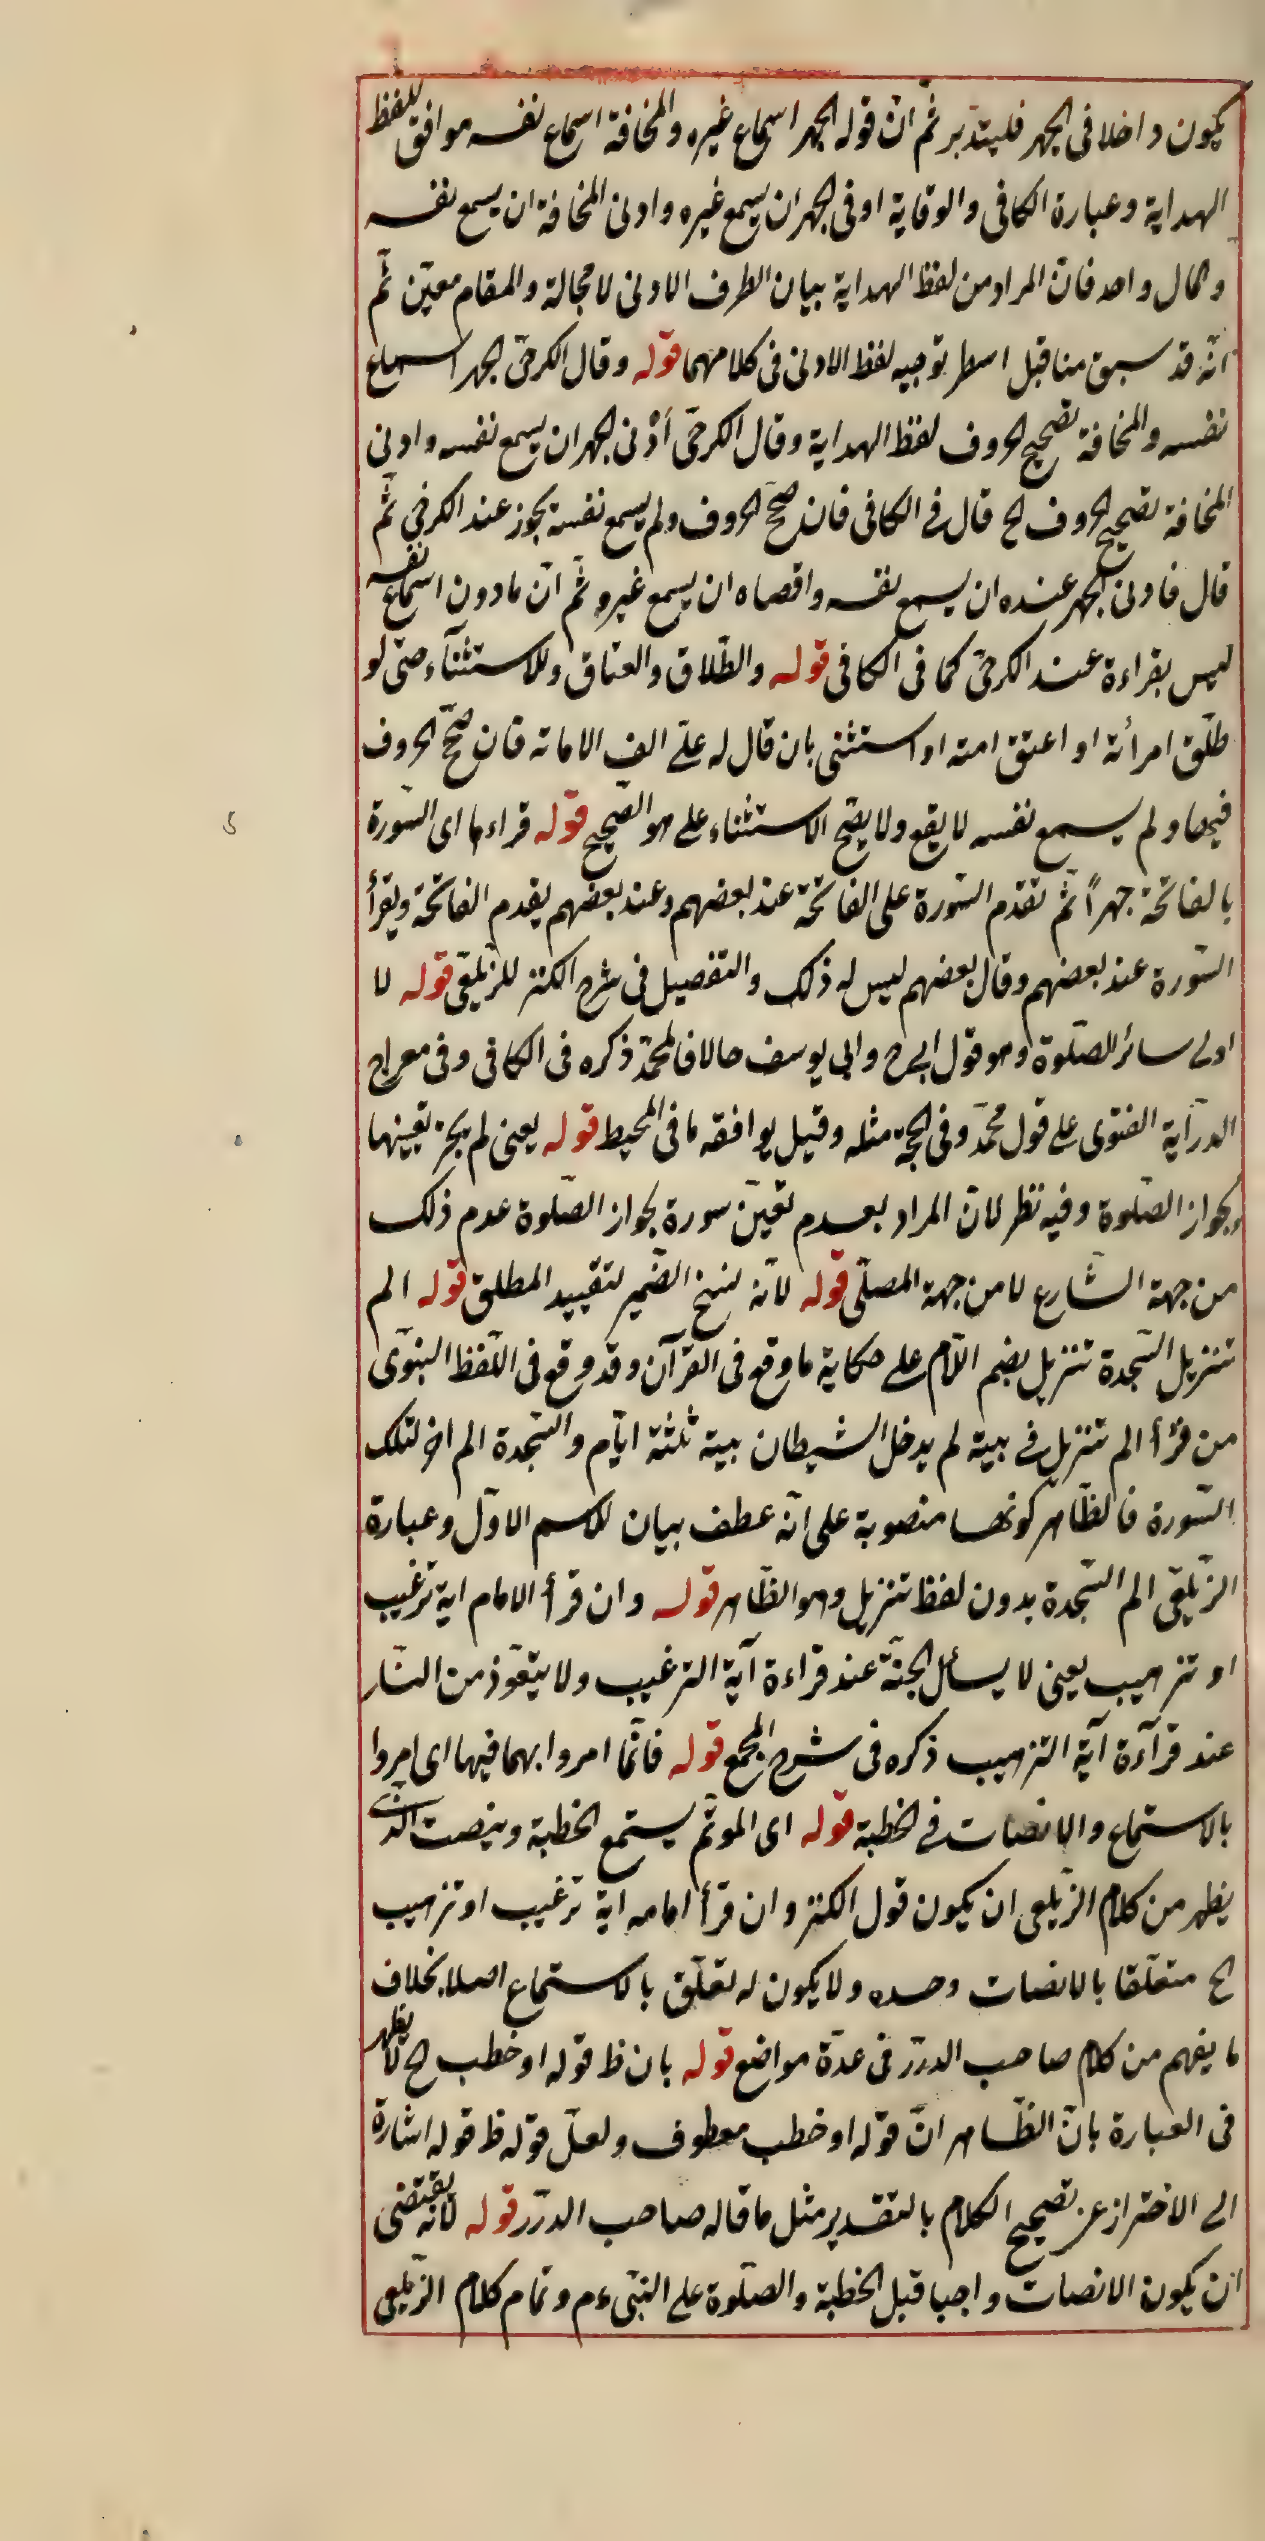 يكون داخلا فى الجهر فليتدبر ثمّ انّ قوله الجهر اسماع غيره والمخافة اسماع نفسه موافق للفظ
الهداية وعبارة الكافى والوقاية ادنى الجهر ان يسمع غيره وادنى المخافة ان يسمع نفسه
والمال واحد فانّ المراد من لفظ الهداية بيان الطرف الادنى لا محالة والمقام معيّن ثمّ
انّه قد سبق منا قبل اسطر توجيه لفظ الادنى فى كلامهما قوله وقال الكرخىّ الجهر اسماع
نفسه والمخافة تصحيح الحروف لفظ الهداية وقال الكرخىّ أدنى الجهر ان يسمع نفسه وادنى
المخافة تصحيح الحروف لح قال فى الكافى فان صحّح الحروف ولم يسمع نفسه يجوز عند الكرخى ثمّ
قال فادنى الجهر عنده ان يسمع نفسه واقصاه ان يسمع غيره ثم انّ ما دون اسماع نفسه
ليس بقراءة عند الكرخىّ كما فى الكافى قوله والطّلاق والعتاق وللاستثنآء حتى لو
طلّق امرأته او اعتق امته او استثنى بان قال له علىّ الف الا مائة فان صحّح الحروف
فيها ولم يسمع نفسه لا يقع ولا يصّح الاستثناء على هو الصّحيح قوله قراءها اى السّورة
بالفاتحة جهراً ثم تقدم السّورة على الفاتحة عند بعضهم وعند بعضهم يقدم الفاتحة ويقرأ
السّورة عند بعضهم وقال بعضهم ليس له ذلك والتفصيل فى شرح الكنز للزيلعىّ قوله لا
اولى سائر الصّلوة وهو قول ابى ح وابى يوسف خلافا لمحمّد ذكره فى الكافى وفى معراج
الدرآية الفتوى على قول محمّد وفى الحجّة مثله وقيل يوافقه ما فى المحيط قوله يعنى لم يجز تعيينها
لجواز الصلوة وفيه نظر لانّ المراد بعدم تعيّن سورة لجواز الصّلوة عدم ذلك
من جهة الشّارع لا من جهة المصلّى قوله لانّه نسخ الضّمير لتقييد المطلق قوله الم
تنزيل السّجدة تنزيل بضم اللّام على حكاية ما وقع فى القرآن وقد وقع فى اللّفظ النبوّى
من قرأ الم تنزيل فى بيته لم يدخل الشيطان بيته ثلثة ايّام والسّجدة الم اخر لتلك
السّورة فالظّاهر كونها منصوبة على انّه عطف بيان للاسم الاوّل وعبارة
الزّيلعّى الم السّجدة بدون لفظ تنزيل وهو الظّاهر قوله وان قرأ الامام اية ترغيب
او ترهيب يعنى لا يسأل الجنّة عند قراءة آية الترغيب ولا يتعّوذ من النّار
عند قرآءة آية الترهيب ذكره فى شرح المجمع قوله فانّما امروا بهما فيها اى امروا
بالاستماع والانصات فى الخطبة قوله اى الموتّم يستمع الخطبة وينصت الذى
يظهر من كلام الزّيلعى ان يكون قول الكنز وان قرأ امامه اية ترغيب او ترهيب
لح متعلّقا بالانصات وحده ولا يكون له تعلّق بالاستماع اصلا بخلاف
ما يفهم من كلام صاحب الدرر فى عدّة مواضع قوله بان ظ قوله او خطب لح لا يظهر
فى العبارة بانّ الظّاهر انّ قوله او خطب معطوف ولعلّ قوله ظ قوله اشارة
الى الاحتراز عن تصحيح الكلام بالتقدير مثل ما قاله صاحب الدرّر قوله لانّه يقتضى
ان يكون الانصات واجبا قبل الخطبة والصلّوة على النبّى ءم وتمام كلام الزّيلعى